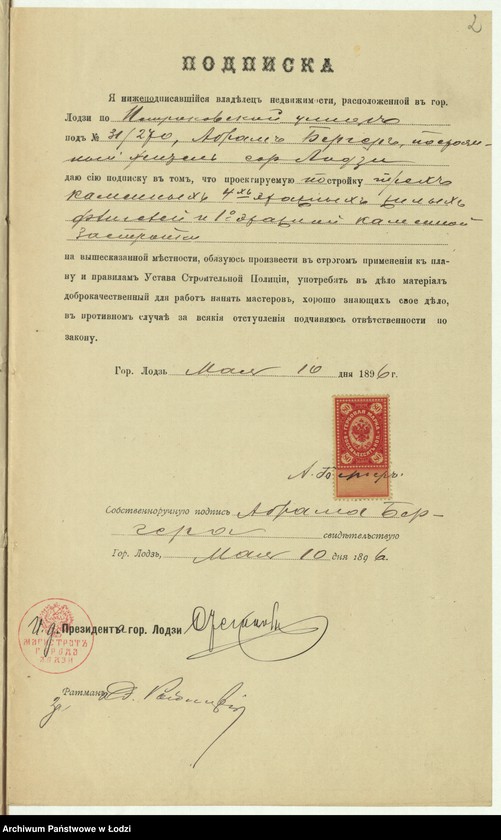 2
ПОДПИСКА
Я нижеподписавшійся владѣлецъ недвижимости, расположенной въ гор.
Лодзи по Петроковской улицѣ
подъ № 31/270, Абрамъ Бергеръ, постоян-
ный житель гор. Лодзи
даю сію подписку въ томъ, что проектируемую постройку трехъ
каменныхъ 4хъ этажныхъ жилыхъ
флигелей и 1о этажной каменной
застройки
на вышесказанной мѣстности, обязуюсь произвести въ строгомъ примѣненіи къ пла-
ну и правиламъ Устава Строительной Полиціи, употребять въ дѣло матеріалъ
доброкачественный для работъ нанять мастеровъ, хорошо знающихъ свое дѣло,
въ противномъ случаѣ за всякія отступленія подчиняюсь отвѣтственности по
закону.
Гор. Лодзь Мая 10 дня 1896 г.
А. Бергеръ.
Собственноручную подпись Абрама Бер-
гера свидѣтельствую
Гор. Лодзь, Мая 10 дня 1896.
И. д. Президента гор. Лодзи
МАГИСТРАТЪ
ГОРОДА
ЛОДЗИ
Ратманъ
Archiwum Państwowe w Łodzi